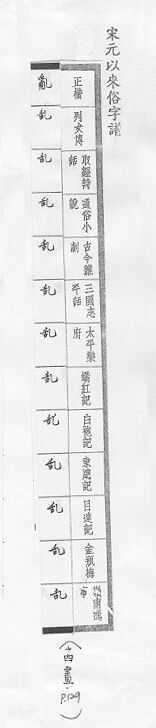 宋元以來俗字譜
正楷 亂
列女傳 乱
取經詩話 乱
通俗小說 乱
古今雜劇 乱
三國志平話 乱
太平樂府 乱
嬌紅記 乱
白袍記 乱
東窗記 乱
目連記 乱
金瓶梅 乱
嶺南逸事 乱
(十四畫 p.129)